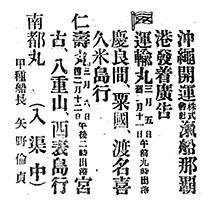 沖繩開運株式會社滊船那覇
港發着廣告
運輸丸三月五日午前九時出港
慶良間、粟國、渡名喜
久米島行
仁壽丸三月六日午後二時出港宮
古、八重山、西表島行
南都丸（入渠中）
甲種船長 矢野倫貞